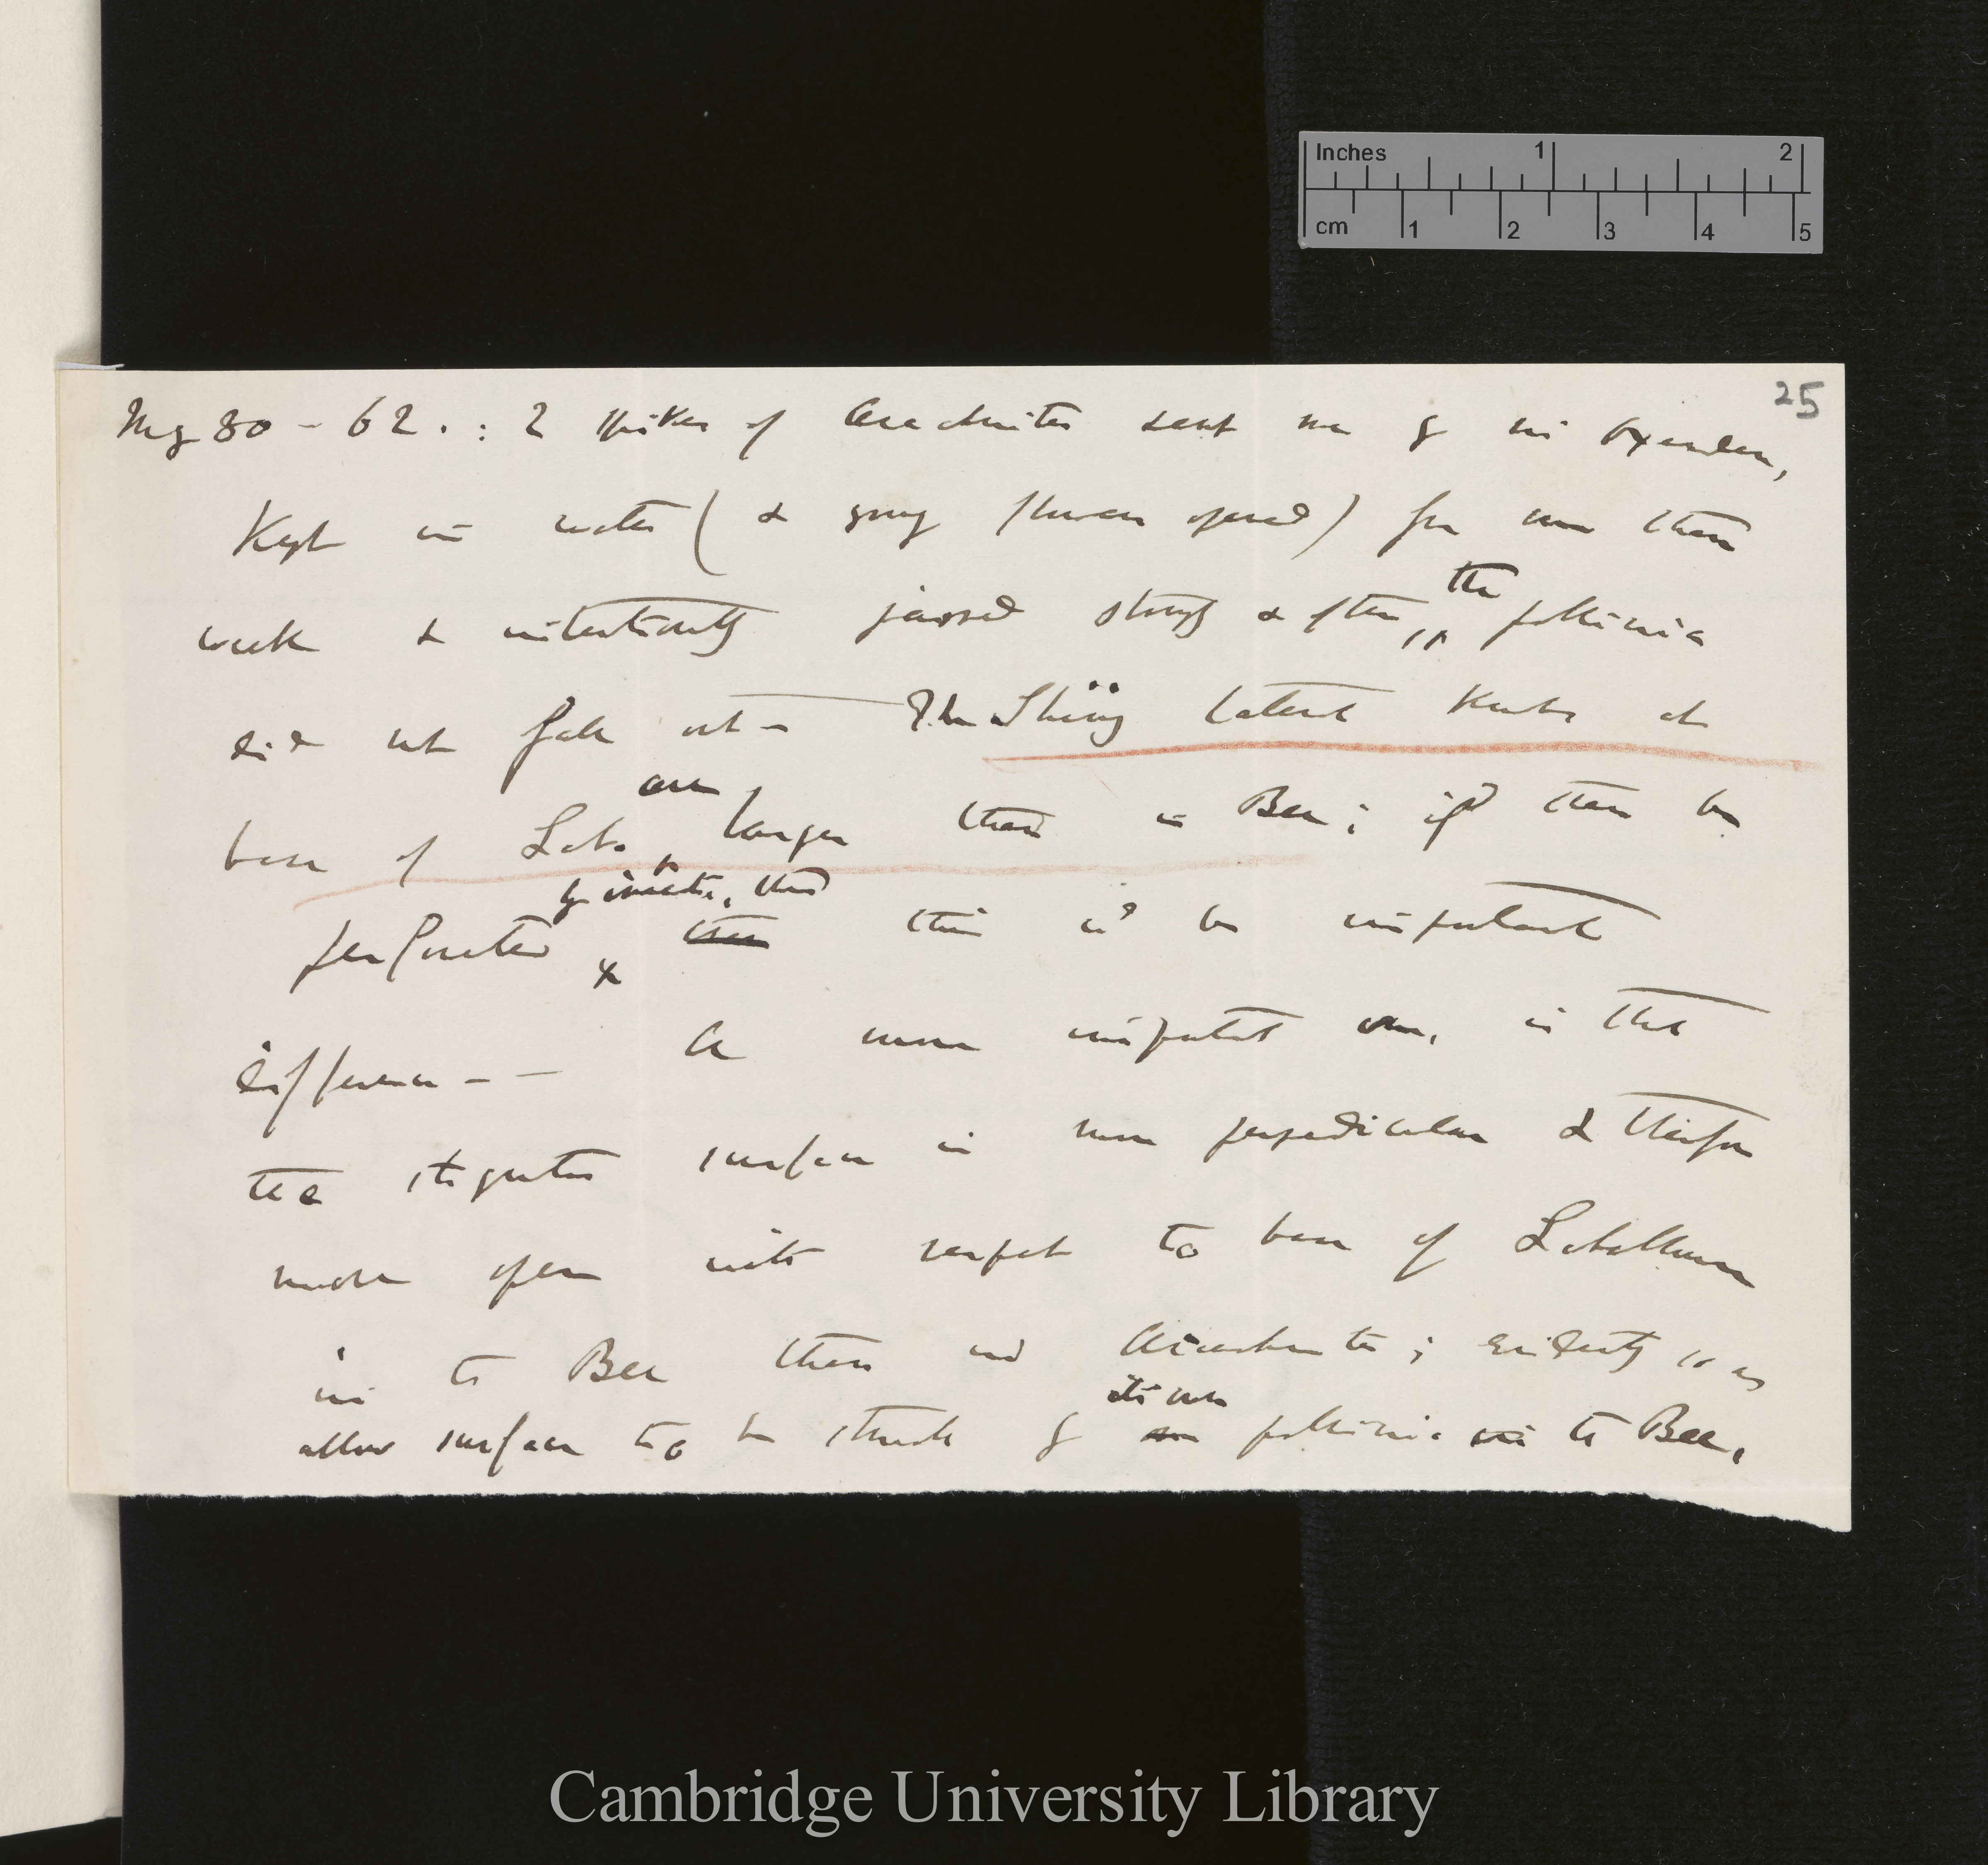 Inches 1 2
cm 1 2 3 4 5
25
May 30 - 62. : 2 spikes of Arachnites sent me by Mr Oxenden,
Kept in water ( & young flowers opened ) for more than
week & intentionally jarred strongly & often, the pollinia
did not fall out - The Shiny lateral knobs at
base of Lab. are larger than in Bee; if there be
perforated by insects, then this wd be important
difference - - A more important one, is that
the stigmatic surface is more perpendicular & therefore
more open with respect to base of Labellum
in the Bee than in Arachnites; evidently so as
allow surface to be struck by its own pollinia in the Bee,
Cambridge University Library